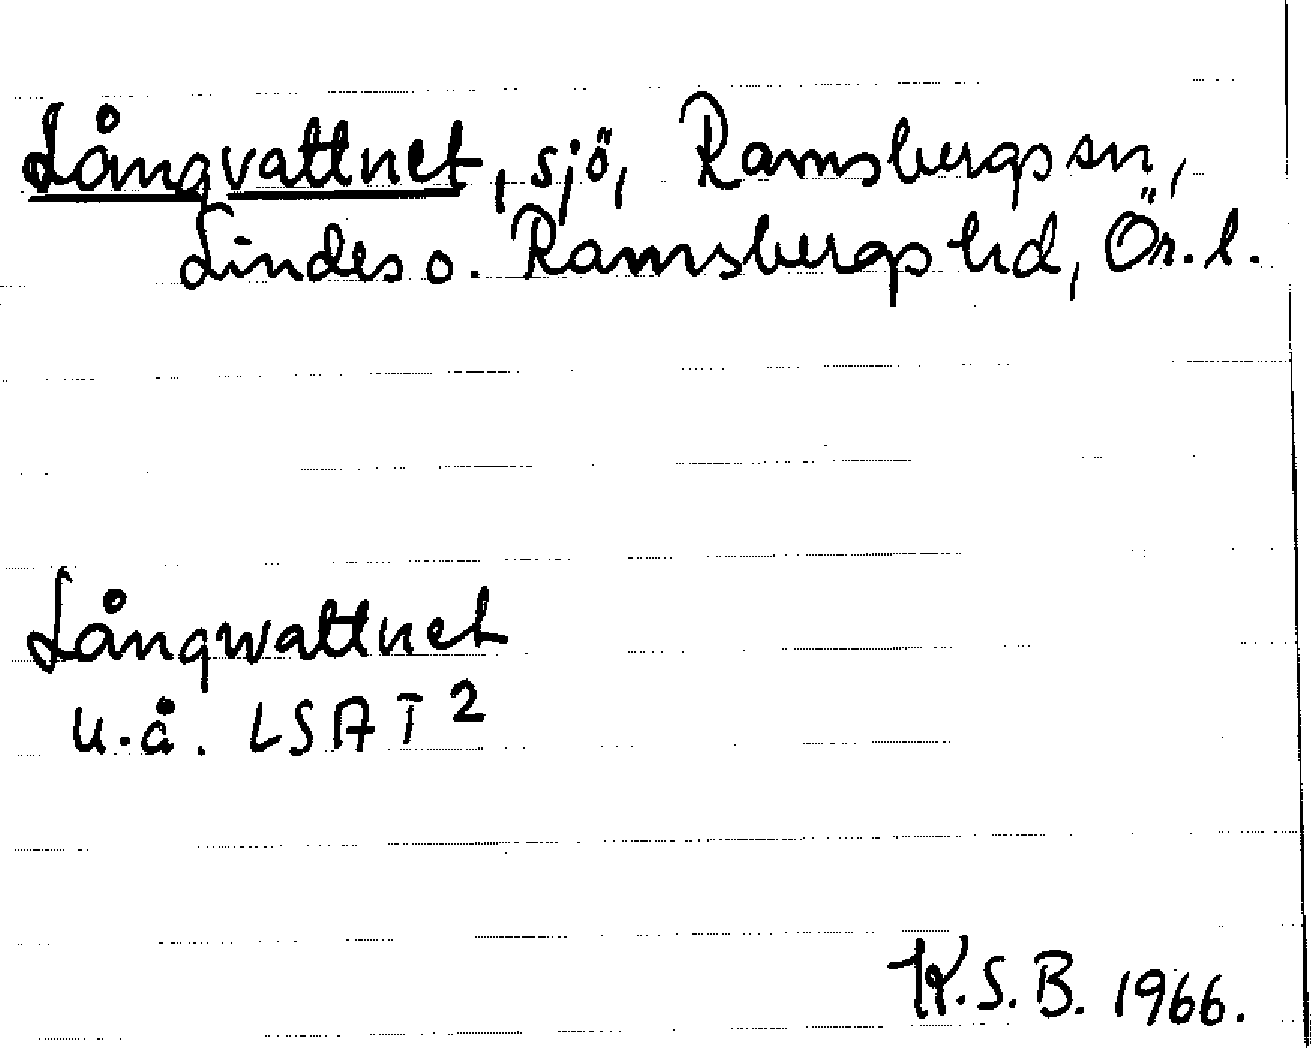 Långvattnet, sjö, Ramsbergs sn,
Lindes o. Ramsbergs hd, Ör. l.
Långwattnet
u.å. LSA T 2
K.S.B. 1966.